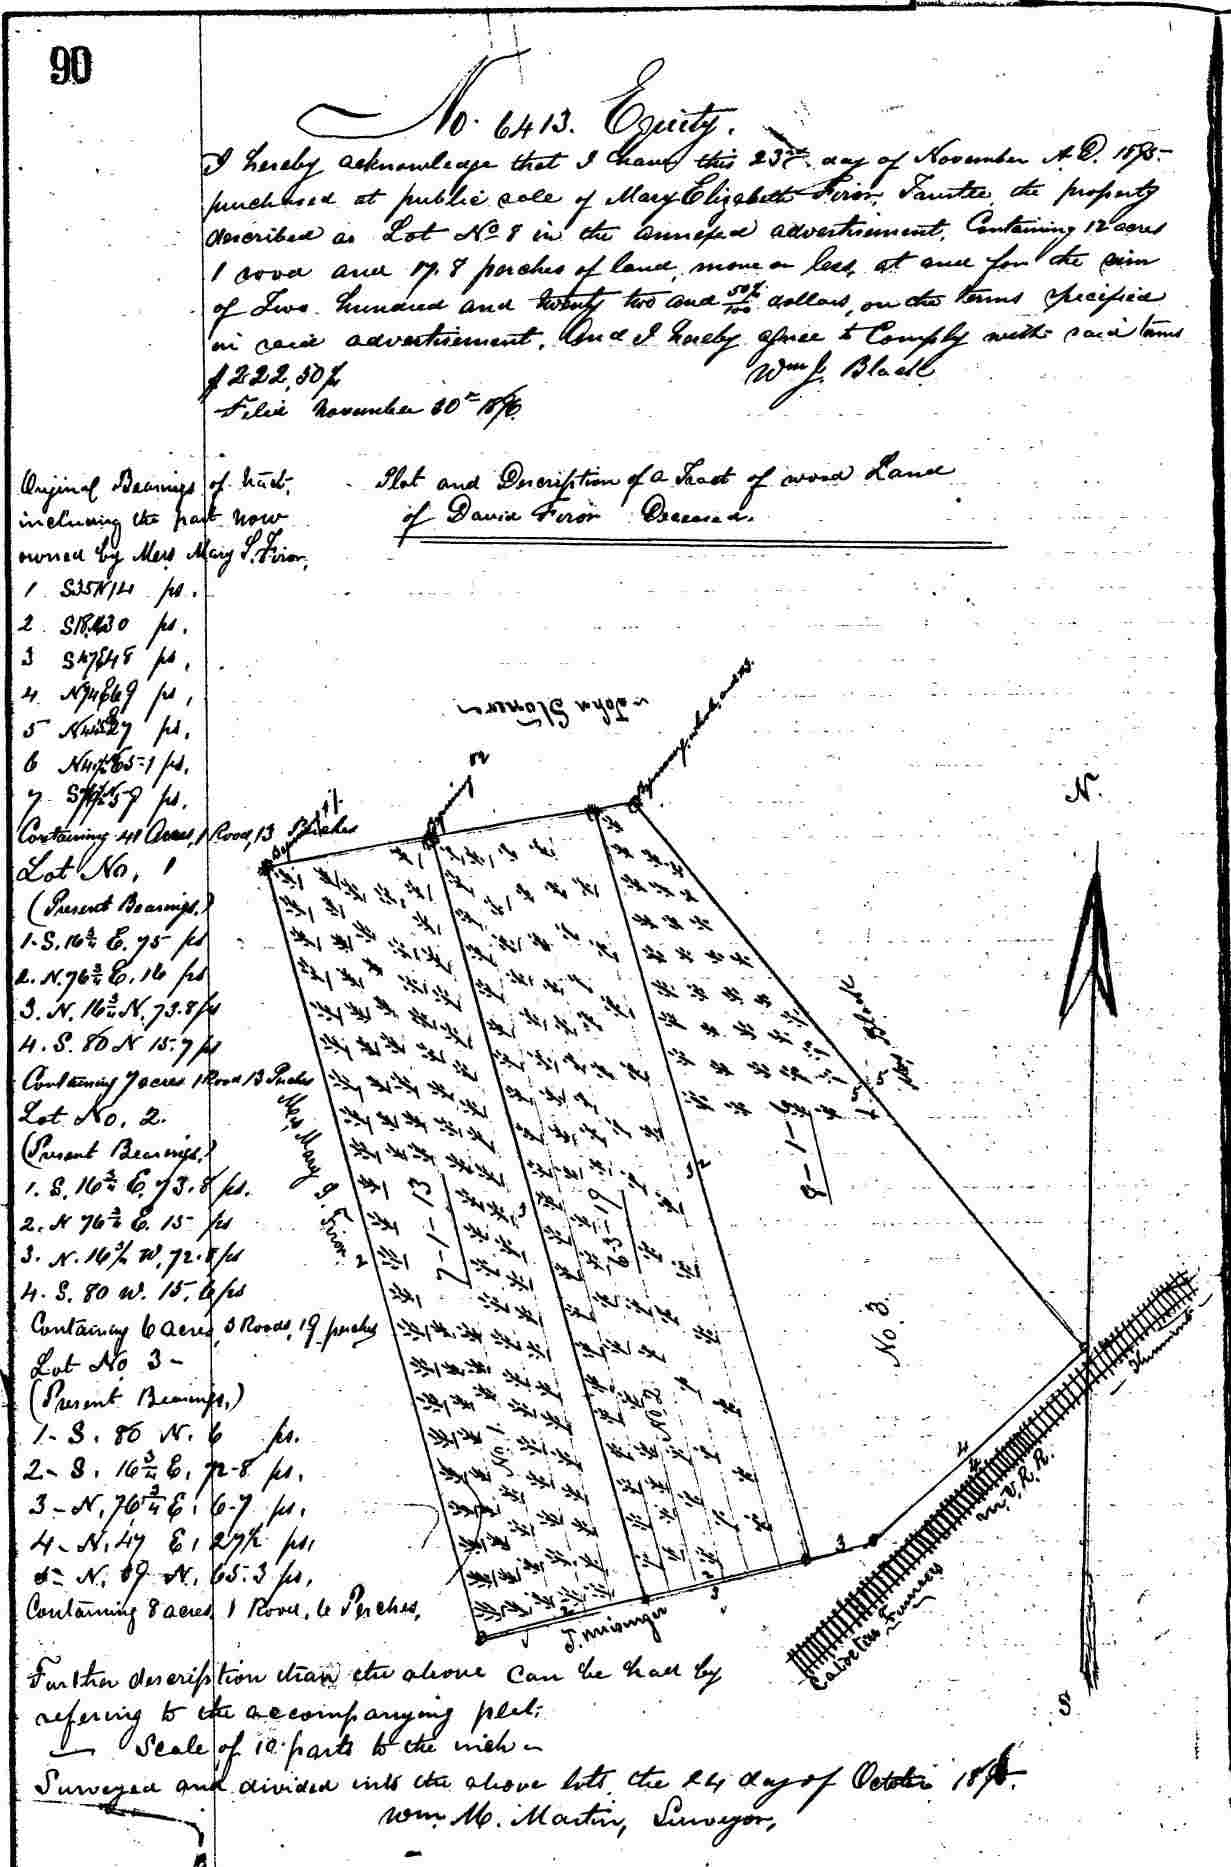 90
No. 6413. Equity.
I hereby acknowledge that I have this 23rd day of November A.D. 1875.
purchased at public sale of Mary Elizabeth Firor, Trustee, the property
described as Lot No 8 in the annexed advertisement, Containing 12 acres
1 rood and 17.8 perches of land, more or less, at and for the sum
of Two hundred and twenty two and 50/100 dollars, on the terms specified
in said advertisement, And I hereby agree to Comply with said terms
$222,50/
Wm J. Black
Filed November 30th
Plot and Description of a Tract of wood Land
of David Firor Deceased.
Original Bearings of tract,
including the part now
owned by Mers Mary S. Firor,
1 S35W14 ps.
2 S18 30 ps,
3 S47E48 ps,
4 N74E69 ps,
5 27 ps,
6 ps,
7 ps,
Containing 41 Acres, 1 Rood, 13 Perches
Lot No, 1
(Present Bearings,)
1-S. 16¾ E. 75 ps
2. N. 76¾ E. 16 ps
3. N. 16¾ N. 73.8 ps
4. S. 80 N 15.7 ps
Containing 7 acres 1 Rood 13 Perches
Lot No, 2.
(Present Bearings,)
1. S. 16¾ E. 73.8 ps.
2. N 76¾ E. 15 ps
3. N. 16¾ W, 72.8 ps
4. S. 80 W. 15.6 ps
Containing 6 acres, 3 Roods, 19 perches
Lot No 3-
(Present Bearings,)
1- S. 80 N. 6 ps.
2- S. 16¾ E, 72-8 ps,
3- N, 76¾ E, 6-7 ps,
4- N, 47 E, 27½ ps,
5- N, 39 N, 65.3 ps,
Containing 8 acres, 1 Rood, 6 Perches,
John Stoner
N.
Wm Black
Mers, Mary S. Firor
7-1-13
6-3-19
8-1-
No 2
No. 3
3
4
5
J. Misinger
W. V. R. R.
Catoctin Furnace
S
Further description than the above can be had by
refering to the accompanying plat.
Scale of 10 parts to the inch
Surveyed and divided into the above lots, the 24 day of October
Wm. M. Martin, Surveyor,